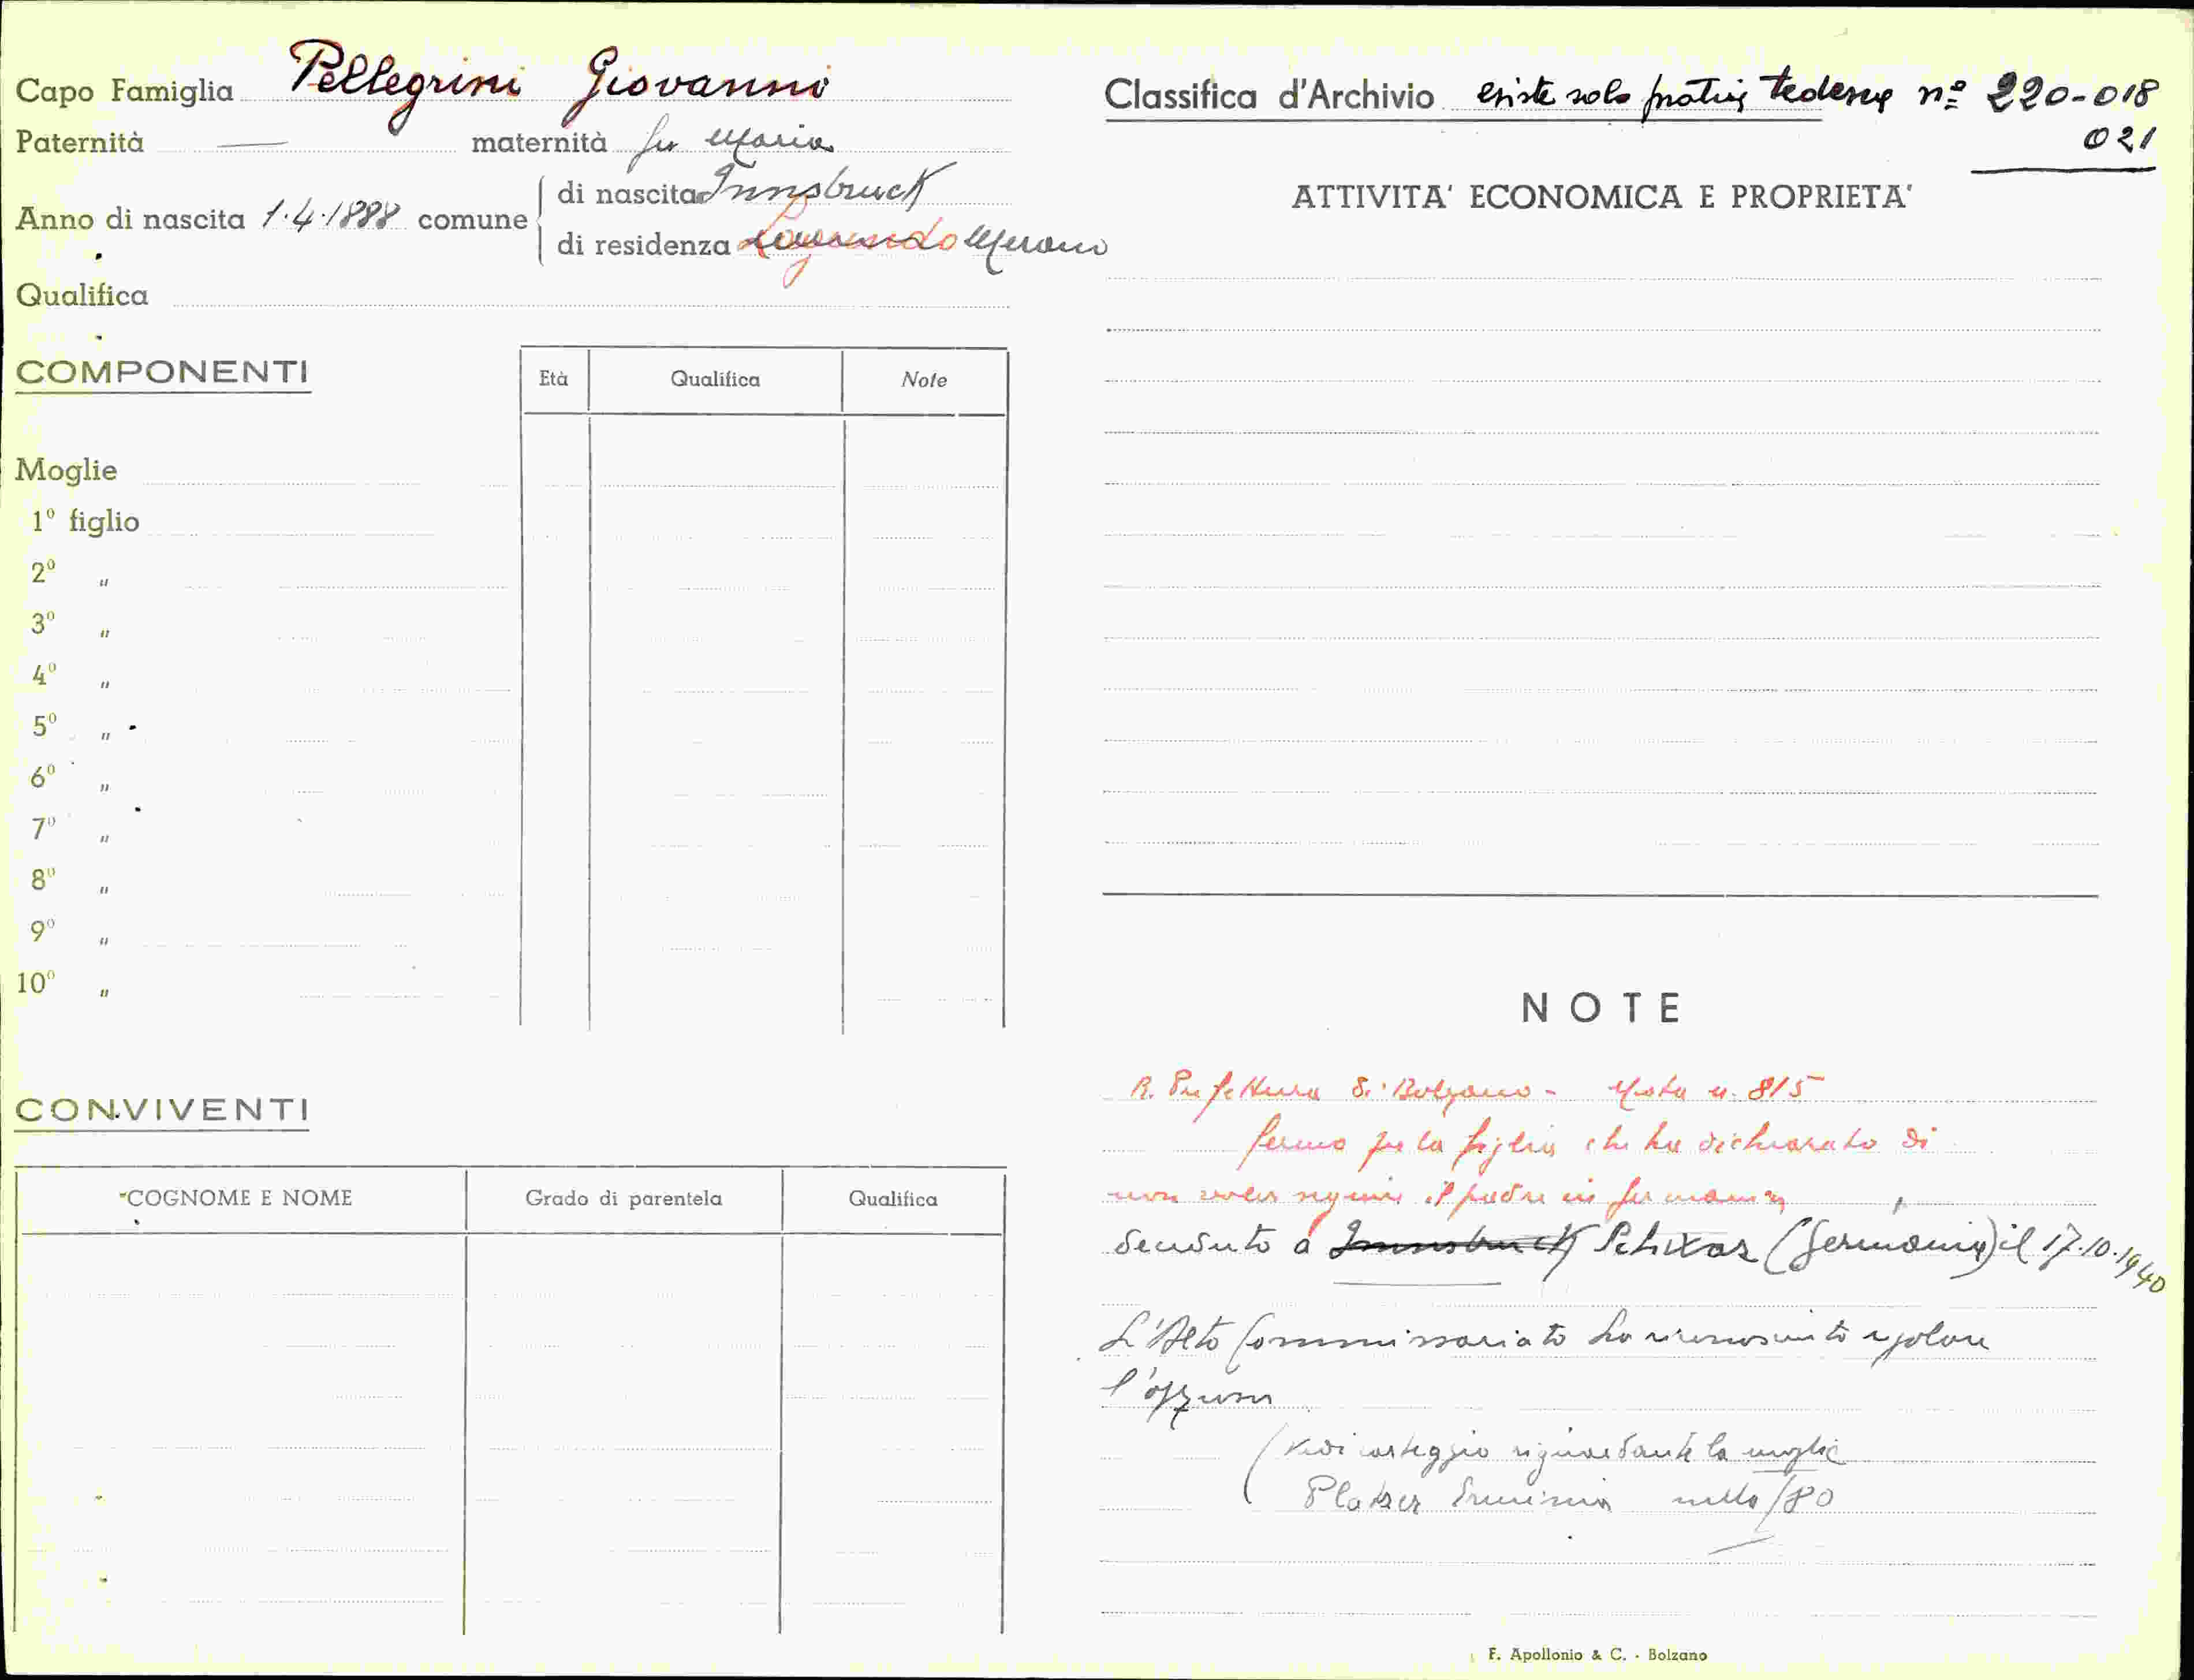 Capo Famiglia Pellegrini Giovanni
Paternità — maternità fu Maria
Anno di nascita 1.4.1888 comune
di nascita Innsbruck
di residenza Lagundo Merano
Qualifica
COMPONENTI
Età Qualifica Note
Moglie
1º figlio
2º "
3º "
4º "
5º "
6º "
7º "
8º "
9º "
10º "
CONVIVENTI
COGNOME E NOME Grado di parentela Qualifica
Classifica d'Archivio esiste solo pratica tedesca nº 220-018
021
ATTIVITA' ECONOMICA E PROPRIETA'
NOTE
R. Prefettura di Bolzano - Nota n. 815
fermo per la figlia che ha dichiarato di
non voler seguire il padre in Germania
deceduto a Innsbruck (Germania) il 17.10.1940
L'Alto Commissariato ha riconosciuto regolare
l'opzione
(Vedi carteggio riguardante la moglie
Platzer Erminia nella /80
F. Apollonio & C. - Bolzano